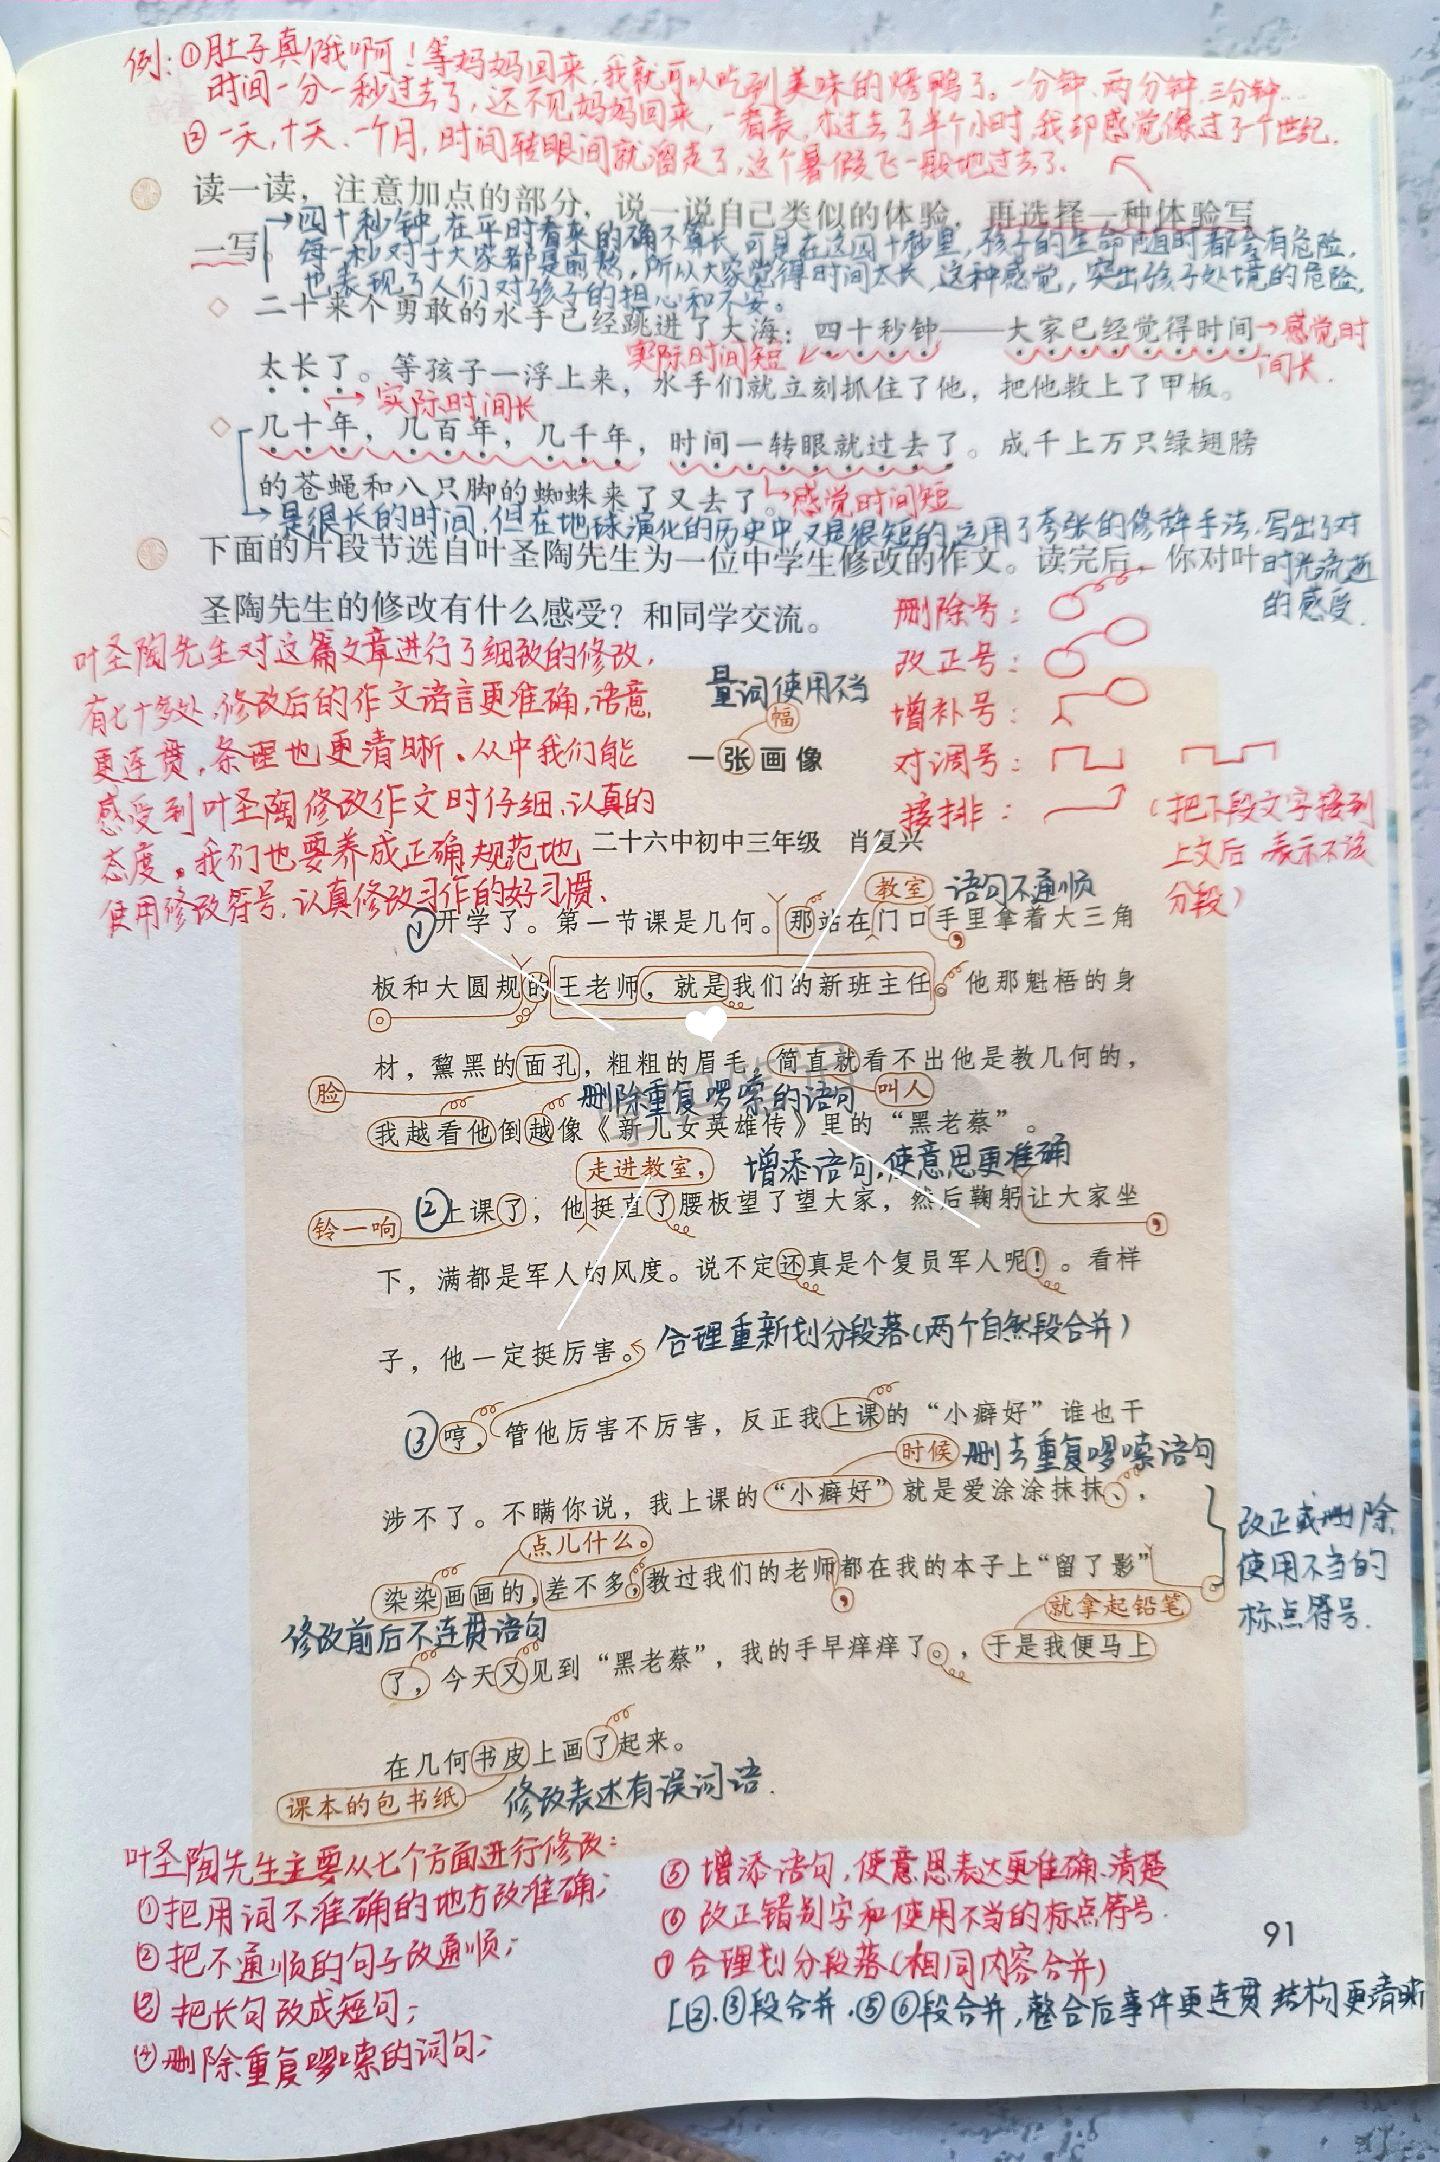 例：①肚子真饿啊！等妈妈回来，我就可以吃到美味的烤鸭了。一分钟、两分钟、三分钟…
时间一分一秒过去了，还不见妈妈回来，一看表，才过去了半个小时，我却感觉像过了一个世纪.
②一天，十天、一个月，时间转眼间就溜走了，这个暑假飞一般地过去了.
读一读，注意加点的部分，说一说自己类似的体验，再选择一种体验写
一写。
→四十秒钟在平时看来的确不算长,可是在这四十秒里，孩子的生命随时都会有危险.
每一秒对于大家都是煎熬，所以大家觉得时间太长,这种感觉，突出孩子处境的危险.
也表现了人们对孩子的担心和不安。
◇ 二十来个勇敢的水手已经跳进了大海：四十秒钟——大家已经觉得时间
→感觉时
间长.
实际时间短
太长了。等孩子一浮上来，水手们就立刻抓住了他，把他救上了甲板。
→实际时间长
◇ 几十年，几百年，几千年，时间一转眼就过去了。成千上万只绿翅膀
的苍蝇和八只脚的蜘蛛来了又去了。
→感觉时间短
→是很长的时间,但在地球演化的历史中,又是很短的,运用了夸张的修辞手法,写出了对
时光流逝
的感受.
下面的片段节选自叶圣陶先生为一位中学生修改的作文。读完后，你对叶
圣陶先生的修改有什么感受？和同学交流。
叶圣陶先生对这篇文章进行了细致的修改,
有七十多处,修改后的作文语言更准确,语意
更连贯，条理也更清晰。从中我们能
感受到叶圣陶修改作文时仔细、认真的
态度。我们也要养成正确规范地
使用修改符号,认真修改习作的好习惯、
删除号：
改正号：
增补号：
对调号：
接排：
（把下段文字接到
上文后 表示不该
分段）
量词使用不当
幅
一张画像
二十六中初中三年级 肖复兴
教室
语句不通顺
①开学了。第一节课是几何。那站在门口手里拿着大三角
，
板和大圆规的王老师，就是我们的新班主任。他那魁梧的身
。
材，黧黑的面孔，粗粗的眉毛，简直就看不出他是教几何的，
脸
叫人
删除重复啰嗦的语句
我越看他倒越像《新儿女英雄传》里的“黑老蔡”。
走进教室，
增添语句,使意思更准确
②上课了，他挺直了腰板望了望大家，然后鞠躬让大家坐
铃一响
，
下，满都是军人的风度。说不定还真是个复员军人呢！。看样
子，他一定挺厉害。
合理重新划分段落(两个自然段合并)
③哼，管他厉害不厉害，反正我上课的“小癖好”谁也干
时候
删去重复啰嗦语句
涉不了。不瞒你说，我上课的“小癖好”就是爱涂涂抹抹、，
点儿什么。
改正或删除
使用不当的
标点符号.
染染画画的，差不多，教过我们的老师都在我的本子上“留了影”
，
。
修改前后不连贯语句
就拿起铅笔
了，今天又见到“黑老蔡”，我的手早痒痒了。，于是我便马上
在几何书皮上画了起来。
课本的包书纸
修改表述有误词语.
叶圣陶先生主要从七个方面进行修改：
①把用词不准确的地方改准确；
②把不通顺的句子改通顺；
③把长句改成短句；
④删除重复啰嗦的词句；
⑤增添语句,使意思表达更准确、清楚
⑥改正错别字和使用不当的标点符号.
⑦合理划分段落(相同内容合并)
[②.③段合并.⑤⑥段合并,整合后事件更连贯 结构更清晰
91